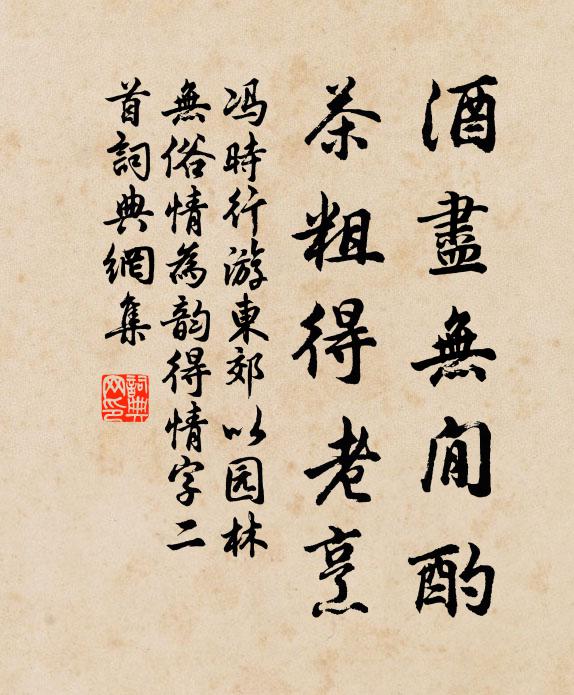 酒盡無閒酌
茶粗得老烹
冯時行游東郊以园林
無俗情為韵得情字二
首詞典網集
詞典网印